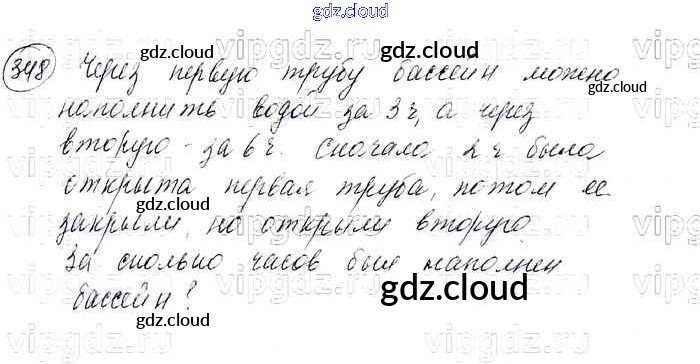 gdz.cloud
348 Через первую трубу бассейн можно
наполнить водой за 3 ч, а через
вторую - за 6 ч. Сначала 2 ч была
открыта первая труба, потом ее
закрыли, но открыли вторую.
За сколько часов был наполнен
бассейн?
gdz.cloud